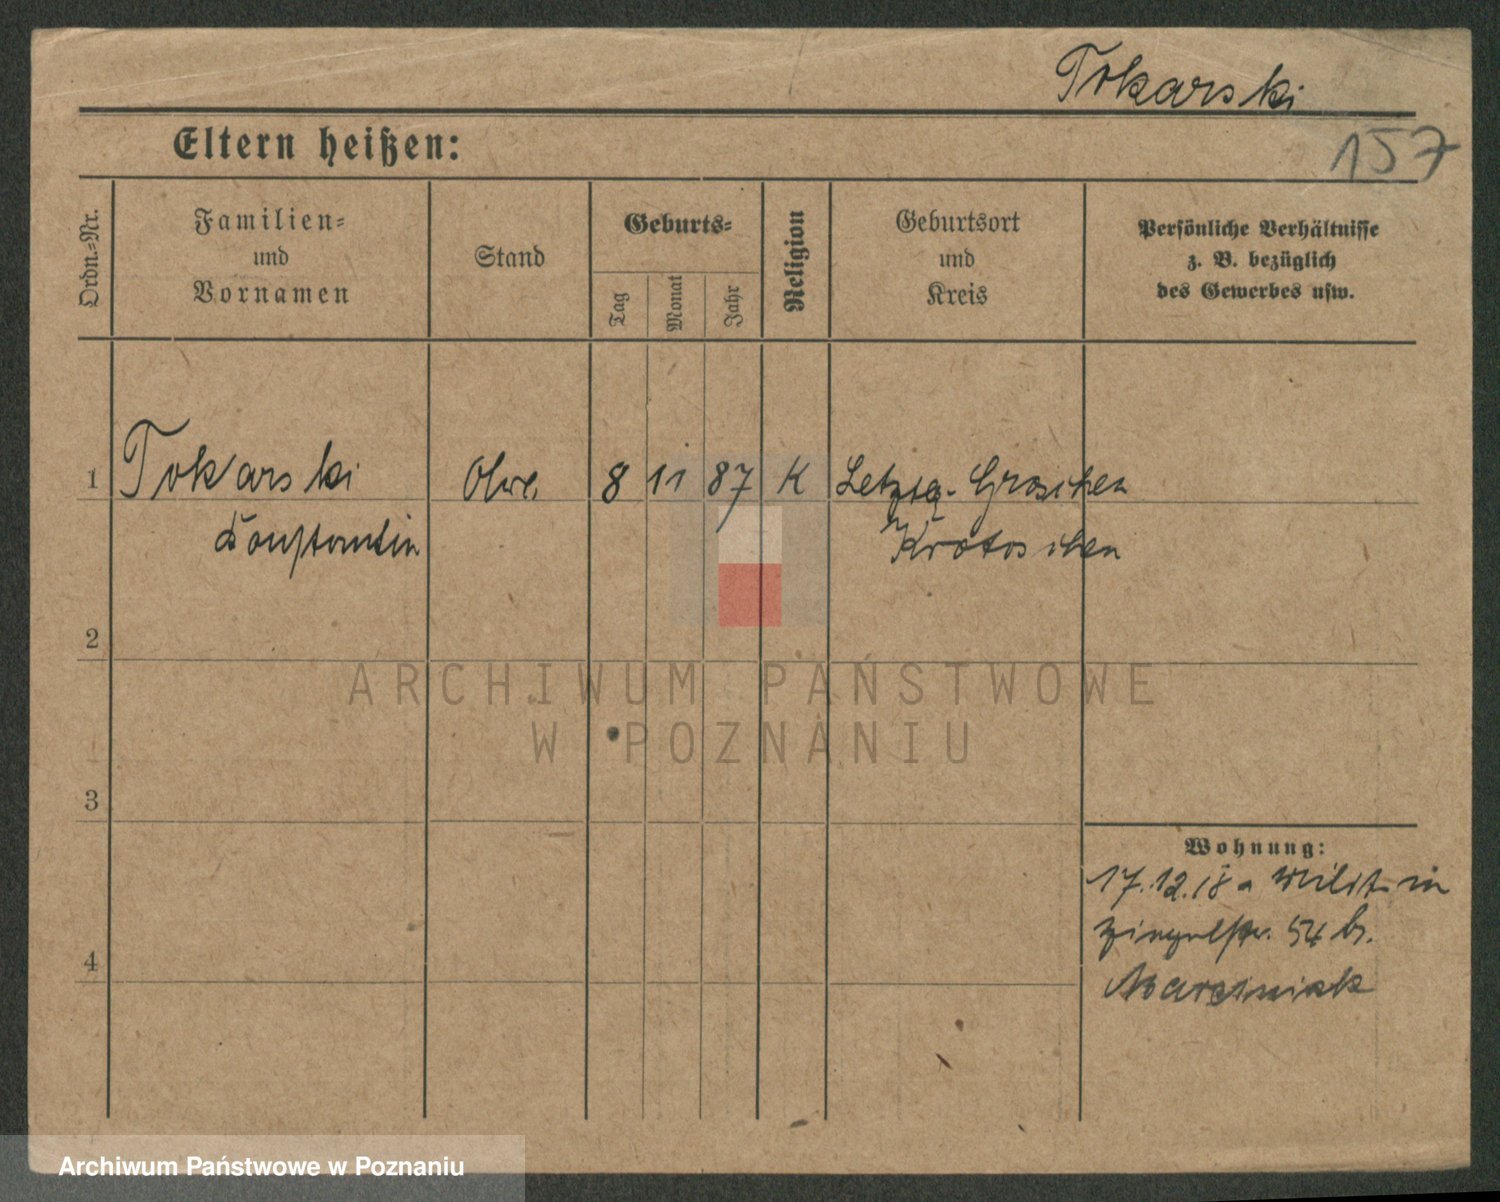 Tokarski
157
Eltern heißen:
Ordn.-Nr.
Familien-
und
Vornamen
Stand
Geburts-
Tag
Monat
Jahr
Religion
Geburtsort
und
Kreis
Persönliche Verhältnisse
z. B. bezüglich
des Gewerbes usw.
1 Tokarski 8 11 87 K
Konstantin Krotoschen
2
3
4
Wohnung:
17.12.18 a Milit. in
54 b.
Marciniak
ARCHIWUM PAŃSTWOWE
W POZNANIU
Archiwum Państwowe w Poznaniu